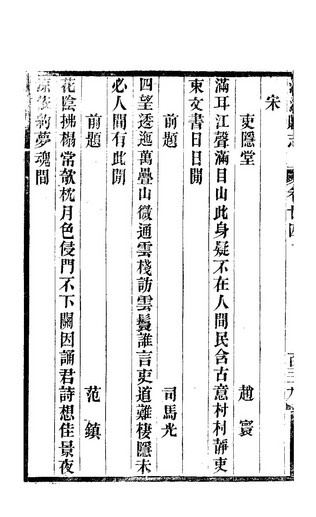 宋
吏隱堂　趙寘
滿耳江聲滿目山此身疑不在人間民含古意村村靜吏
東文書日日閒
前題　司馬光
四望逶迤萬疊山微通雲棧訪雲鬟誰言吏道難棲隱未
必人間有此閒
前題　范鎮
花陰拂榻當欹枕月色侵門不下關因誦君詩想佳景夜
約夢魂間
卷廿四
百三九